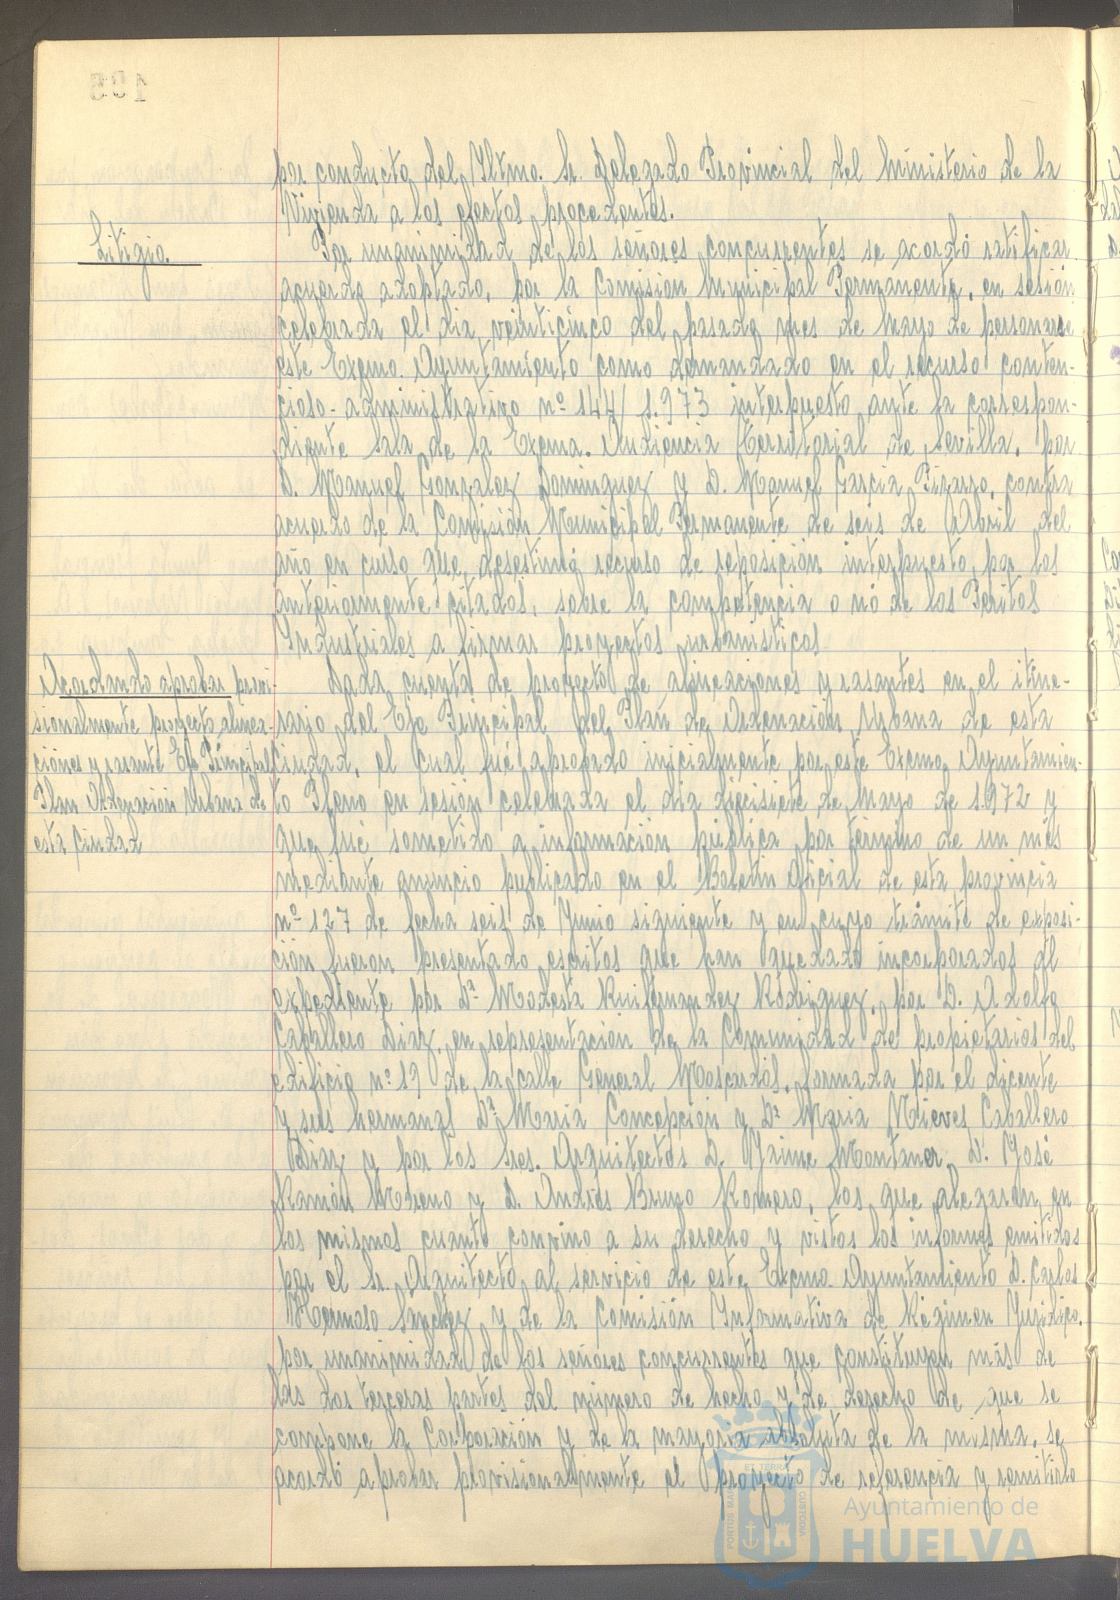 por conducto del Yltmo. Sr. Delegado Provincial del Ministerio de la
Vivienda a los efectos procedentes.
Litigio.
Por unanimidad de los señores concurrentes se acordó ratificar
acuerdo adoptado, por la Comisión Municipal Permanente, en sesión
celebrada el dia veinticinco del pasado mes de Mayo de personarse
este Excmo. Ayuntamiento como demandado en el recurso conten-
cioso-administrativo nº 144/1.973 interpuesto ante la correspon-
diente Sala de la Excma. Audiencia Territorial de Sevilla, por
D. Manuel Gonzalez Dominguez y D. Manuel Garcia Pizarro, contra
acuerdo de la Comisión Municipal Permanente de seis de Abril del
año en curso que desestimó recurso de reposición interpuesto, por los
anteriormente citados, sobre la competencia o nó de los Peritos
Industriales a firmar proyectos urbanisticos
Acordando aprobar provi-
sionalmente proyecto alinea-
ciónes y rasante Eje Principal
Plan Ordenación Urbana de
esta Ciudad
Dada cuenta de proyecto de alineaciones y rasantes en el itine-
rario del Eje Principal del Plan de Ordenación Urbana de esta
Ciudad, el cual fué aprobado inicialmente por este Excmo. Ayuntamien-
to Pleno en sesión celebrada el dia diecisiete de Mayo de 1.972 y
que fué sometido a información pública por término de un mes
mediante anuncio publicado en el Boletin Oficial de esta provincia
nº 127 de fecha seis de Junio siguiente y en cuyo trámite de exposi-
ción fueron presentado escritos que han quedado incorporados al
expediente por Dª Modesta Ruifernandez Rodriguez, por D. Adolfo
Caballero Diaz, en representación de la Comunidad de propietarios del
edificio nº 19 de la calle General Moscardó, formada por el dicente
y sus hermanas Dª Maria Concepción y Dª Maria Nieves Caballero
Diaz y por los Sres. Arquitectos D. Jaime Montaner, D. José
Ramón Moreno y D. Andrés Bruno Romero, los que alegaron en
los mismos cuanto convino a su derecho y vistos los informes emitidos
por el Sr. Arquitecto al servicio de este Excmo. Ayuntamiento D. Carlos
Hermoso Sanchez y de la Comisión Informativa de Régimen Juridico,
por unanimidad de los señores concurrentes que constituyen más de
las dos terceras partes del número de hecho y de derecho de que se
compone la Corporación y de la mayoria absoluta de la misma, se
acordó aprobar provisionalmente el proyecto de referencia y remitirlo
Ayuntamiento de
HUELVA